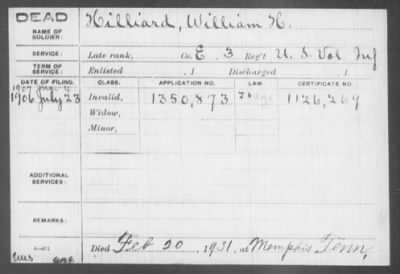 DEAD
NAME OF SOLDIER: Hilliard, William H.
SERVICE: Late rank, Co. E, 3 Reg't U. S. Vol Inf
TERM OF SERVICE: Enlisted , 1 Discharged , 1
DATE OF FILING. CLASS. APPLICATION NO. LAW. CERTIFICATE NO.
1907
1906 July 23 Invalid, 1350,873 1126,269
Widow,
Minor,
ADDITIONAL SERVICES:
REMARKS:
Died Feb 20, 1931, at Memphis Tenn,